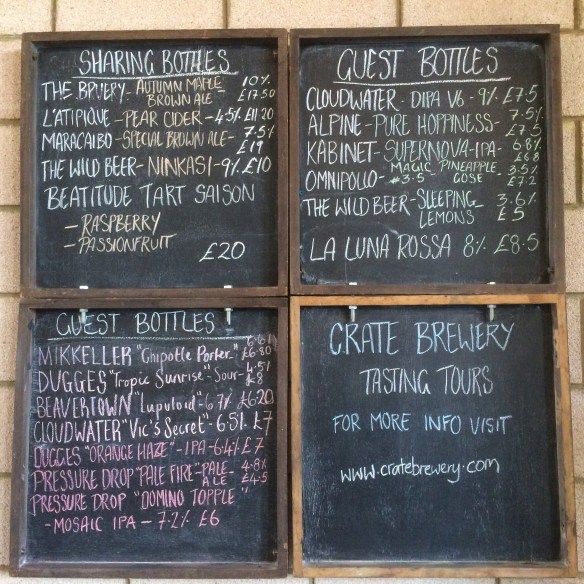 SHARING BOTTLES
THE BRUERY - AUTUMN MAPLE 10%
BROWN ALE £17.50
L'ATIPIQUE - PEAR CIDER - 4.5% £11.20
MARACAIBO - SPECIAL BROWN ALE - 7.5%
£19
THE WILD BEER - NINKASI - 9% £10
BEATITUDE TART SAISON
- RASPBERRY
- PASSIONFRUIT
£20
GUEST BOTTLES
CLOUDWATER - DIPA V6 - 9% £7.5
ALPINE - PURE HOPPINESS - 7.5%
£7.5
KABINET - SUPERNOVA - IPA - 6.8%
£6.8
OMNIPOLLO - MAGIC PINEAPPLE 3.5%
#3.5 GOSE £7.2
THE WILD BEER - SLEEPING 3.6%
LEMONS £5
LA LUNA ROSSA 8% £8.5
GUEST BOTTLES
MIKKELLER "Chipotle Porter" £6.80
DUGGES "Tropic Sunrise" - Sour - 4.5%
£8
BEAVERTOWN "Lupuloid" - 6.7% £6.20
CLOUDWATER "Vic's Secret" - 6.5% £7
DUGGES "ORANGE HAZE" - IPA - 6.4% £7
PRESSURE DROP "PALE FIRE" PALE - 4.8%
ALE £4.5
PRESSURE DROP "DOMINO TOPPLE"
- MOSAIC IPA - 7.2% £6
CRATE BREWERY
TASTING TOURS
FOR MORE INFO VISIT
www.cratebrewery.com